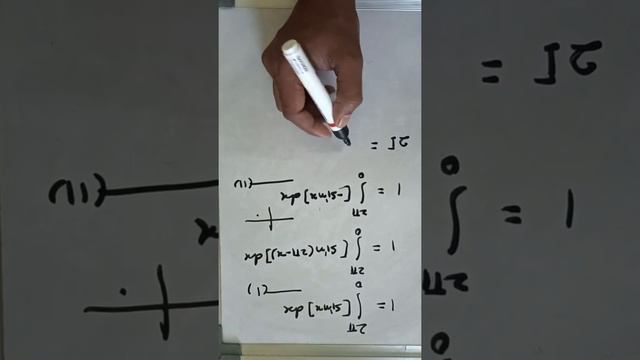 I = ∫₀^{2π} [sin x] dx —(i)
I = ∫₀^{2π} [sin(2π-x)] dx
I = ∫₀^{2π} [-sin x] dx —(ii)
2I =